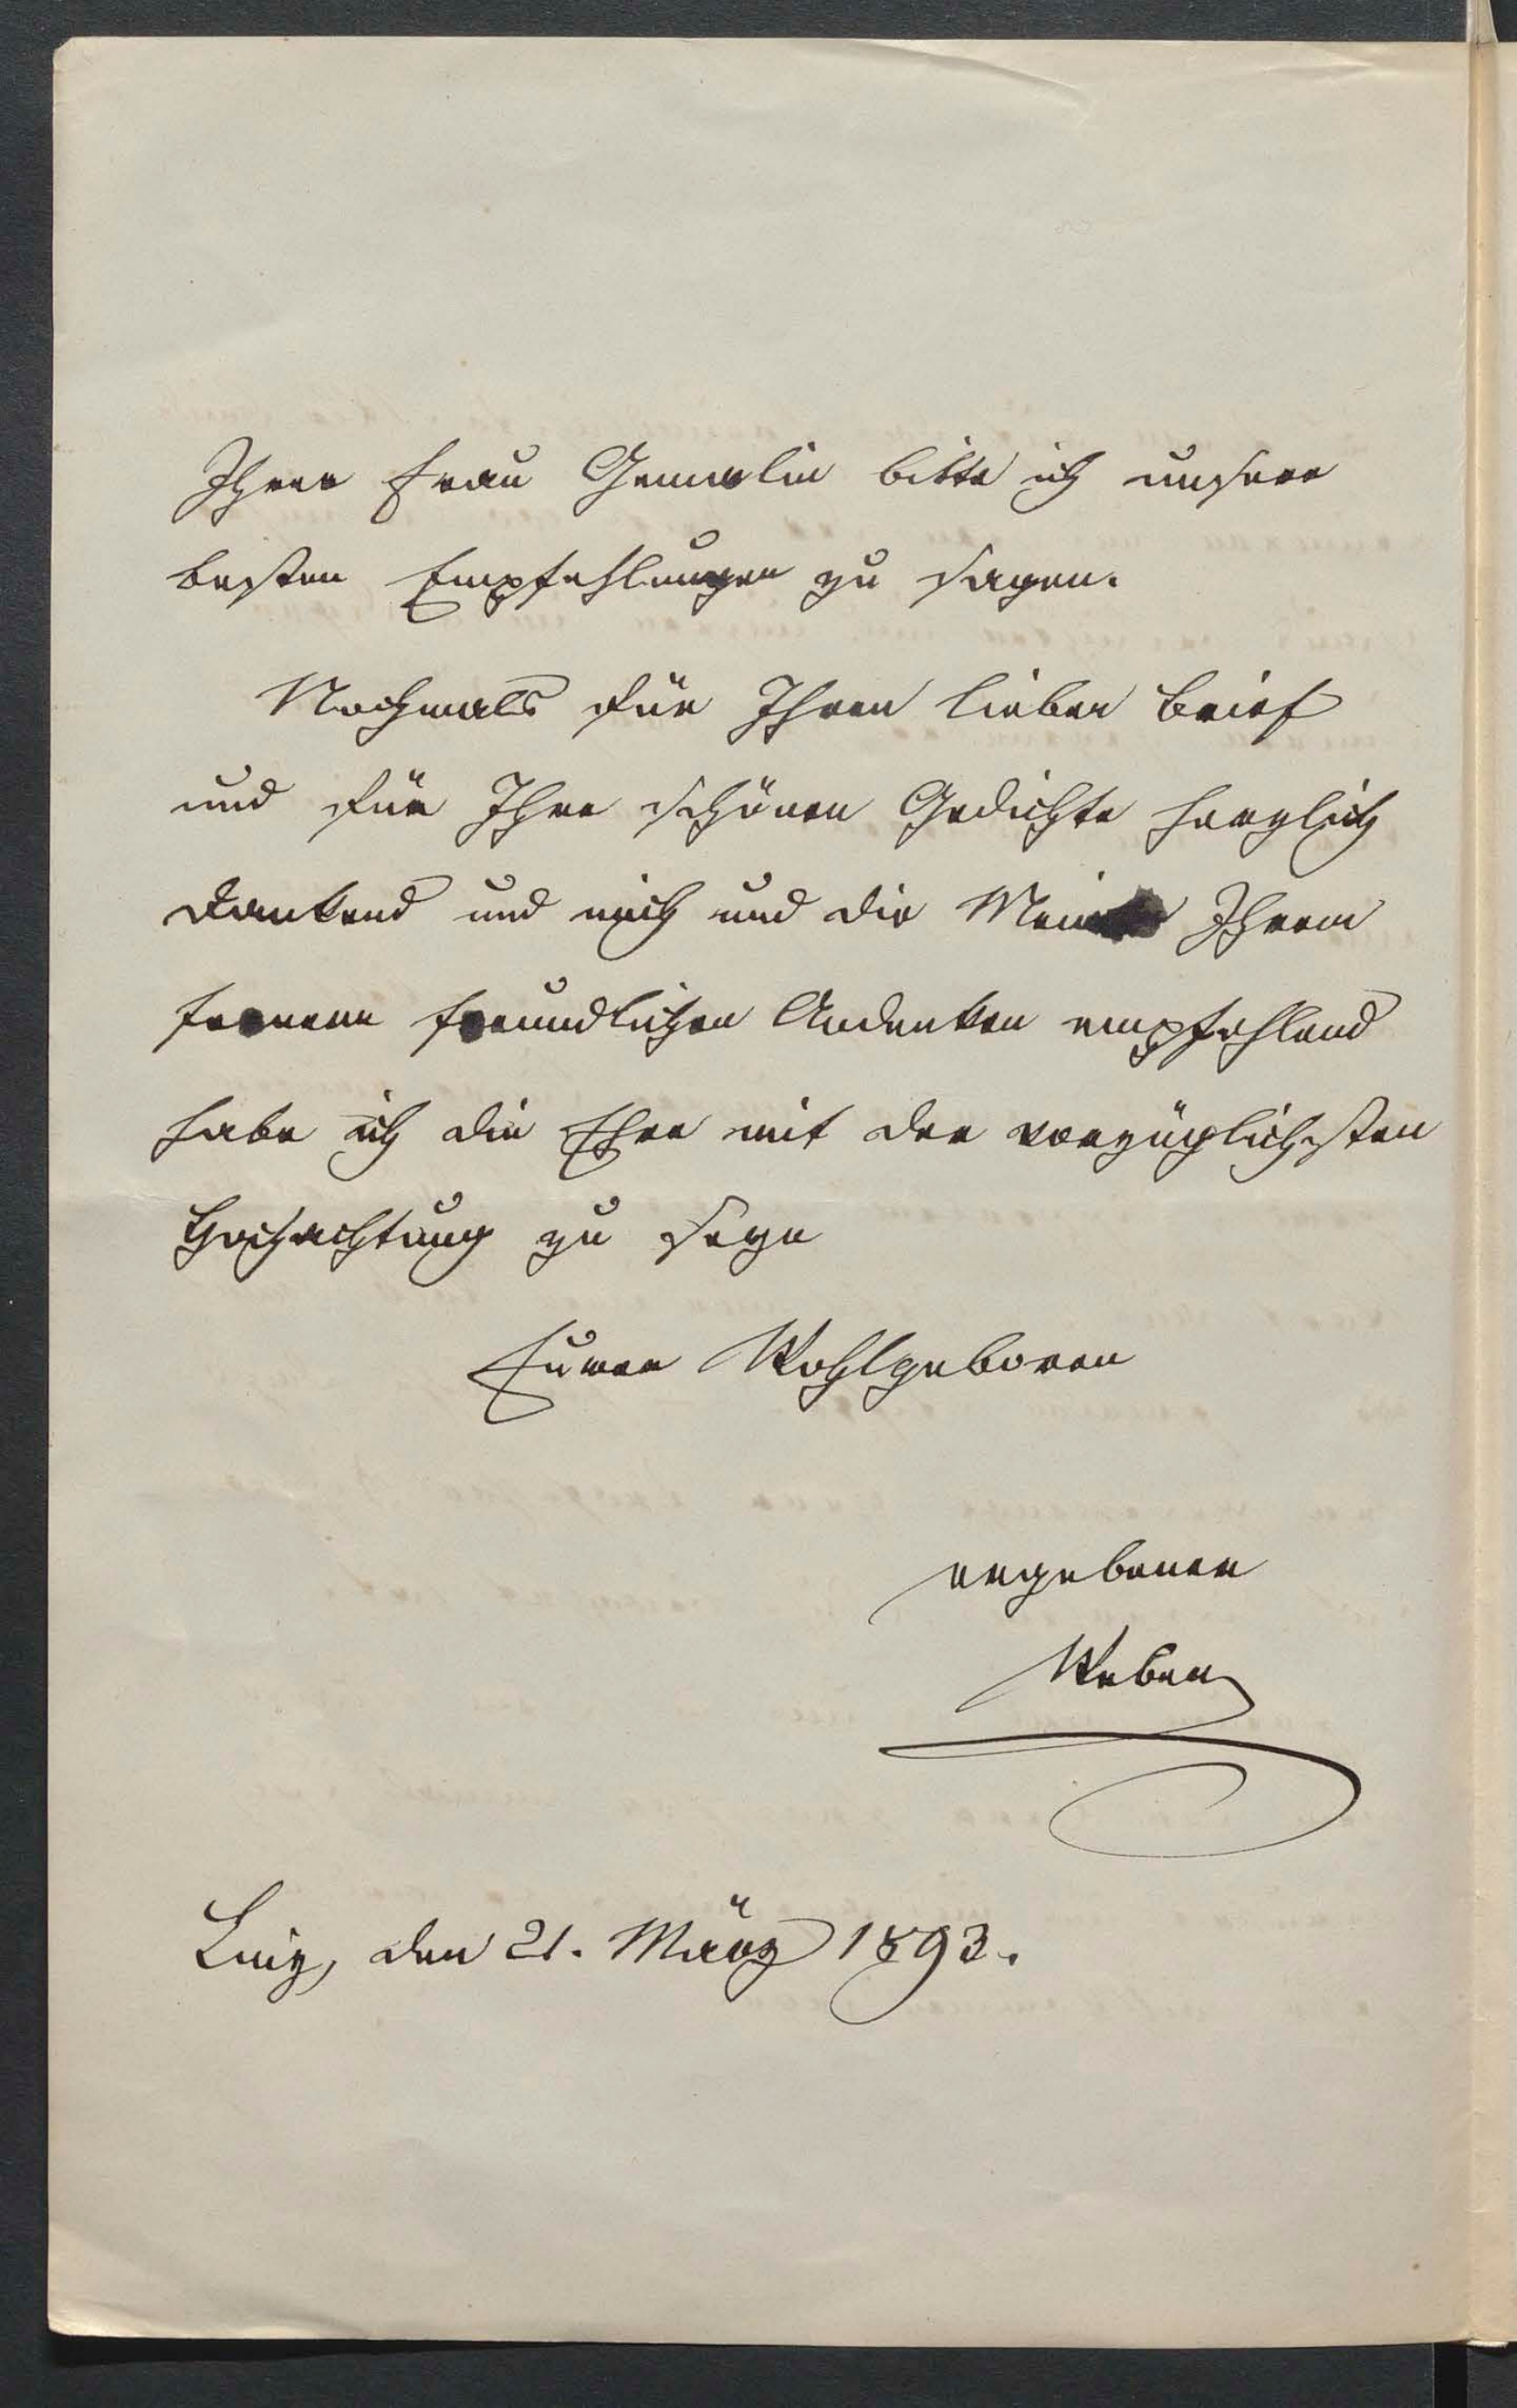 Ihrer Frau Gemalin bitte ich unsere
besten Empfehlungen zu sagen.
Nochmals für Ihren lieben Brief
und für Ihre schönen Gedichte herzlich
dankend und mich und die Meinen Ihrem
fernern freundlichen Andenken empfehlend
habe ich die Ehre mit der vorzüglichsten
Hochachtung zu seyn
Euer Wohlgeboren
ergebener
Weber
Linz, den 21. März 1893.